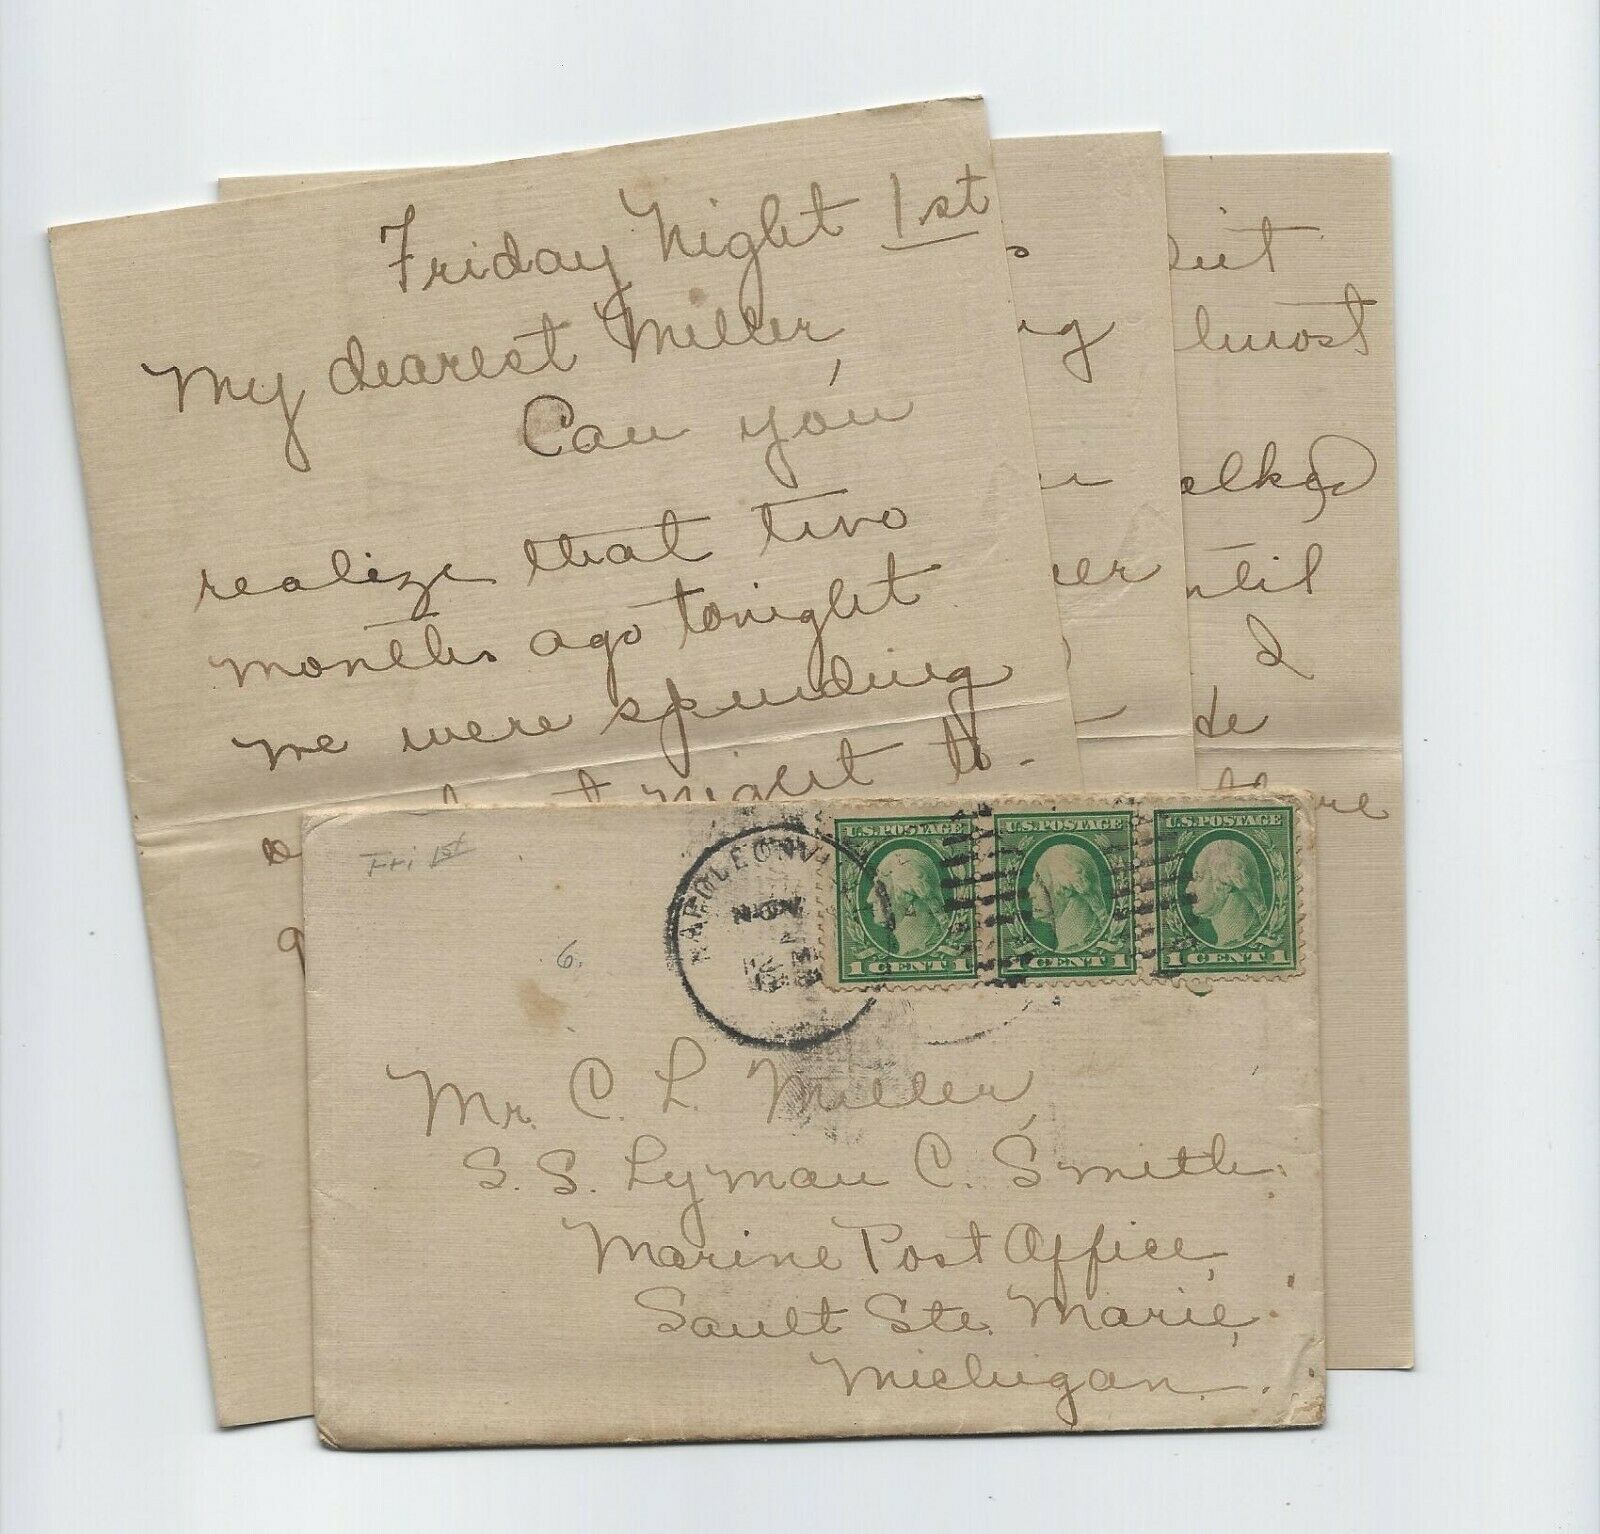 Friday Night 1st
My dearest Miller,
Can you
realize that two
months ago tonight
we were spending
night to-
ug
er
out
lmost
alked
ntil
I
de
there
Fri 1st
6.
NAPOLEONVI
NOV
U.S. POSTAGE
1 CENT 1
U.S. POSTAGE
1 CENT 1
U.S. POSTAGE
1 CENT 1
Mr. C. L. Miller,
S. S. Lyman C. Smith.
Marine Post Office,
Sault Ste. Marie,
Michigan.